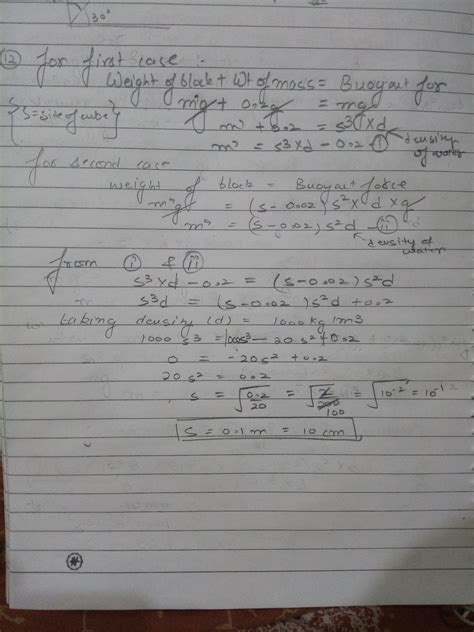 30°
(12) for first case :-
Weight of block + Wt of mass = Buoyant for
{S = Site of cube} m'g + 0.2g = mg
m' + 0.2 = s³ x d
m' = s³ x d - 0.2 - (i) density of water
for second case
weight of block = Buoyant force
m'g = (s - 0.02) s² x d x g
m' = (s - 0.02) s²d - (ii)
density of water
from (i) & (ii)
s³ x d - 0.2 = (s - 0.02) s²d
s³d = (s - 0.02) s²d + 0.2
taking density (d) = 1000 kg/m3
1000 s3 = 1000s³ - 20s² + 0.2
0 = -20s² + 0.2
20s² = 0.2
s = √0.2/20 = √2/200 100 = √10⁻² = 10⁻¹
S = 0.1m = 10 cm